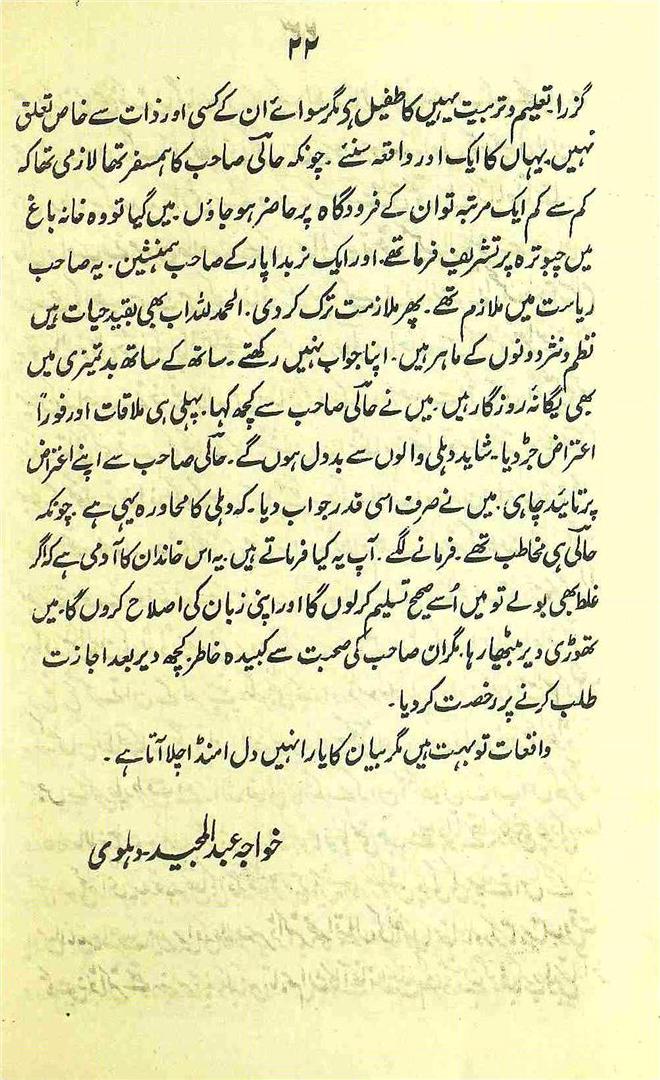 ۲۲
گزرا۔ تعلیم و تربیت یہیں کا طفیل ہی مگر سوائے ان کے کسی اور ذات سے خاص تعلق
نہیں۔ یہاں کا ایک اور واقعہ سنئے۔ چونکہ حالی صاحب کا ہمسفر تھا لازمی تھا کہ
کم سے کم ایک مرتبہ تو ان کے فرودگاہ پر حاضر ہو جاؤں۔ میں گیا تو وہ خانہ باغ
میں چبوترہ پر تشریف فرما تھے۔ اور ایک نربدا پار کے صاحب ہمنشین۔ یہ صاحب
ریاست میں ملازم تھے۔ پھر ملازمت ترک کر دی۔ الحمدللہ اب بھی بقید حیات ہیں
نظم و نثر دونوں کے ماہر ہیں۔ اپنا جواب نہیں رکھتے۔ ساتھ کے ساتھ بدتمیزی میں
بھی یگانۂ روزگار ہیں۔ میں نے حالی صاحب سے کچھ کہا۔ پہلی ہی ملاقات اور فوراً
اعتراض جڑ دیا۔ شاید دہلی والوں سے بددل ہوں گے۔ حالی صاحب سے اپنے اعتراض
پر تائید چاہی۔ میں نے صرف اسی قدر جواب دیا۔ کہ دہلی کا محاورہ یہی ہے۔ چونکہ
حالی ہی مخاطب تھے۔ فرمانے لگے۔ آپ یہ کیا فرماتے ہیں۔ یہ اس خاندان کا آدمی ہے کہ اگر
غلط بھی بولے تو میں اُسے صحیح تسلیم کر لوں گا اور اپنی زبان کی اصلاح کروں گا۔ میں
تھوڑی دیر بیٹھا رہا۔ مگر ان صاحب کی صحبت سے کبیدہ خاطر۔ کچھ دیر بعد اجازت
طلب کرنے پر رخصت کر دیا۔
واقعات تو بہت ہیں مگر بیان کا یارا نہیں دل امنڈا چلا آتا ہے۔
خواجہ عبدالمجید۔ دہلوی